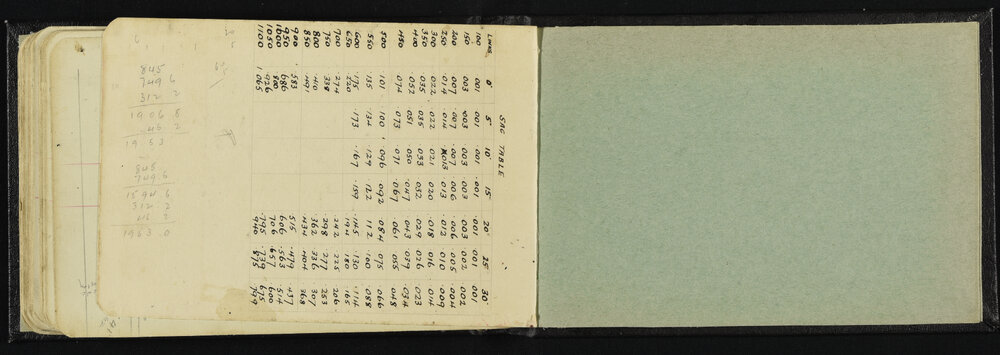 SAG TABLE
LINKS 0° 5° 10° 15° 20° 25° 30°
100 001 001 001 .001 .001 001 001
150 003 .003 003 .003 003 002 002
200 .007 .007 .007 006 .006 005 004
250 .014 014 013 013 .012 010 .009
300 022 022 021 020 .018 016 014
350 035 035 033 032 029 026 023
400 052 .051 050 .047 .043 .039 034
450 074 .073 071 .067 .061 055 .048
500 101 100 096 .092 084 075 066
550 .135 .134 .129 .122 .112 .100 088
600 .175 .173 .167 .159 .145 .130 .114
650 .220 .194 .180 .165
700 .274 .242 .225 .206
750 338 298 277 253
800 410 362 336 307
850 .491 .434 404 368
900 .583 515 .479 .437
950 686 606 .563 514
1000 800 706 .657 600
1050 926 .795 .739 675
1100 1 065 940 875 799
845
749 6
312 2
1906 8
46 2
19 53
845
749.6
1594.6
312.2
46 2
1953.0